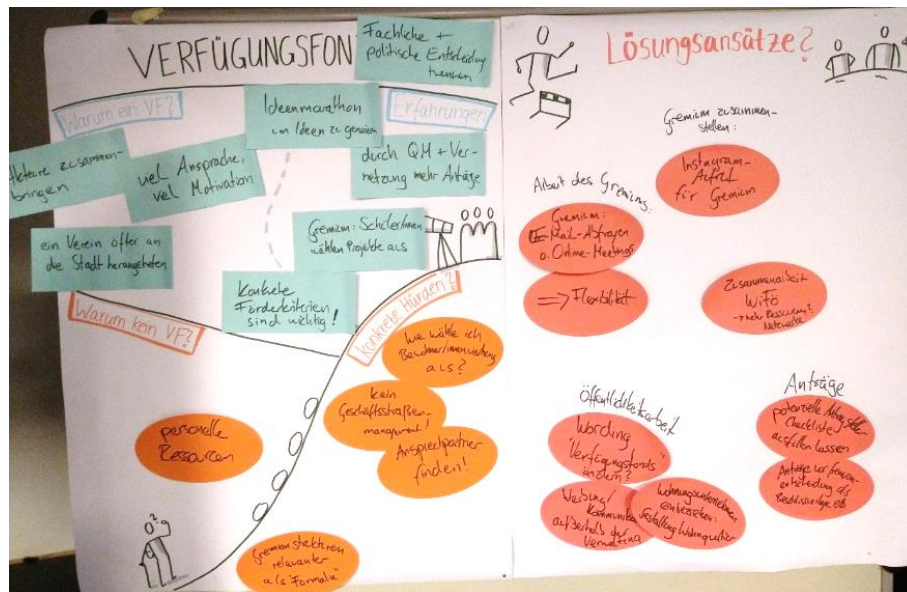 VERFÜGUNGSFON
Fachliche +
politische Entscheidung
trennen
Warum ein VF?
Ideenmarathon
um Ideen zu generieren
Erfahrungen
Akteure zusammen-
bringen
viel Ansprache,
viel Motivation
durch QM + Ver-
netzung mehr Anträge
ein Verein öfter an
die Stadt herangetreten
Gremium: SchülerInnen
wählen Projekte aus
Konkrete
Förderkriterien
sind wichtig!
Warum kein VF?
konkrete Hürden?
wie wähle ich
BewohnerInnenvertretung
aus?
kein
Geschäftsstraßen-
management!
Ansprechpartner
finden!
personelle
Ressourcen
Gremienstrukturen
relevanter
als "Formalia"
LÖSUNGSANSÄTZE?
Gremium zusammen-
stellen:
Instagram-
Aufruf
für Gremium
Arbeit des Gremiums:
Gremium:
Mail-Abfragen
o. Online-Meetings
=> Flexibilität
Zusammenarbeit
WiFö
→ mehr
Netzwerke
Öffentlichkeitsarbeit
Wording
"Verfügungsfonds"
ändern?
Werbung/
Kommunikation
außerhalb der
Verwaltung
Wohnungsunternehmen
einbeziehen:
Gestaltung Wohnquartier
Anträge
potenzielle Antragsteller
Checkliste
ausfüllen lassen
Anträge vor Gremien-
entscheidung als
Beschlussvorlage OB